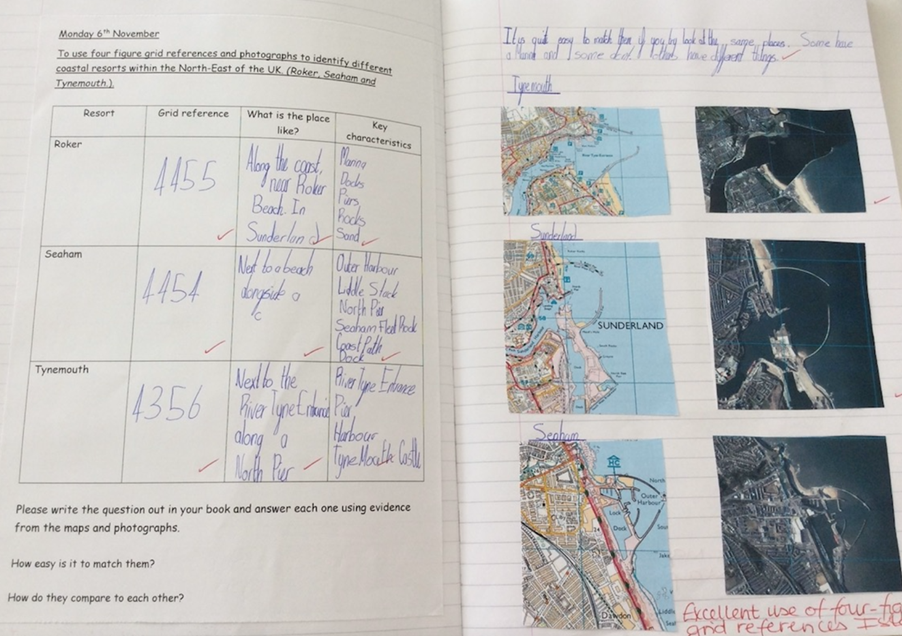 Monday 6th November
To use four figure grid references and photographs to identify different
coastal resorts within the North-East of the UK. (Roker, Seaham and
Tynemouth.)
Resort
Grid reference
What is the place
like?
Key
characteristics
Roker
4455
Along the coast,
near Roker
Beach. In
Sunderland
Marina
Docks
Piers
Rocks
Sand
Seaham
4454
Next to a beach
alongside a
c
Outer Harbour
Liddle Stack
North Pier
Seaham Fled Rock
Coast Path
Dock
Tynemouth
4356
Next to the
River Tyne Entrance
along a
North Pier
River Tyne Entrance
Pier,
Harbour
Tyne Mouth Castle
Please write the question out in your book and answer each one using evidence
from the maps and photographs.
How easy is it to match them?
How do they compare to each other?
It is quit easy to match them if you look at the same places. Some have
a Marina and some don't have different things.
Tynemouth
Sunderland
SUNDERLAND
Seaham
North
Outer
Harbour
Lock
Dock
Dawdon
Liddle
Excellent use of four-fig
and references